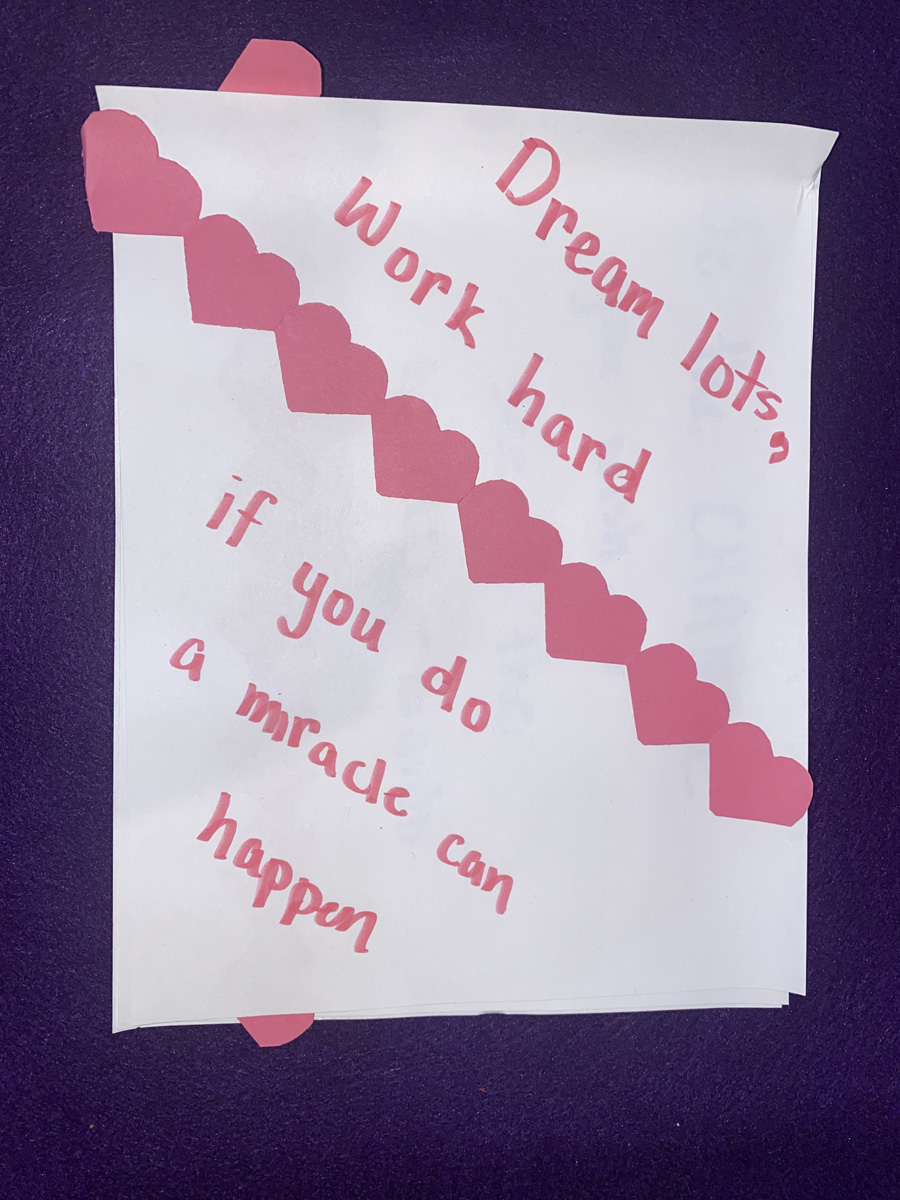 Dream lots,
Work hard
if you do
a mracle can
happen